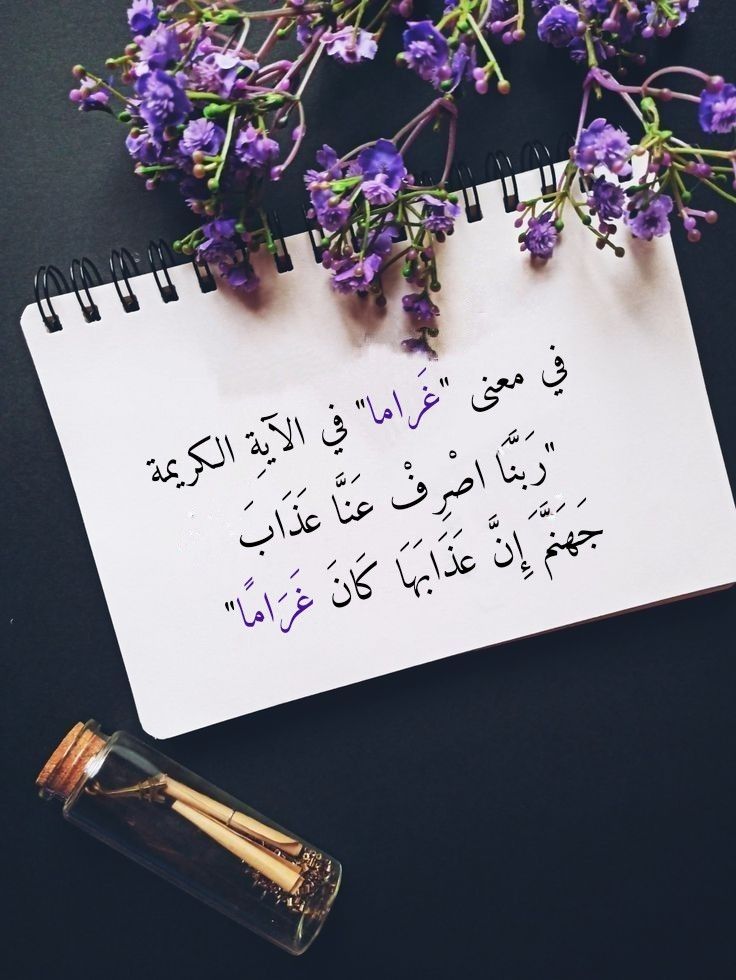 في معنى "غَراما" في الآيةِ الكريمة
"رَبَّنَا اصْرِفْ عَنَّا عَذَابَ
جَهَنَّمَ إِنَّ عَذَابَهَا كَانَ غَرَامًا"